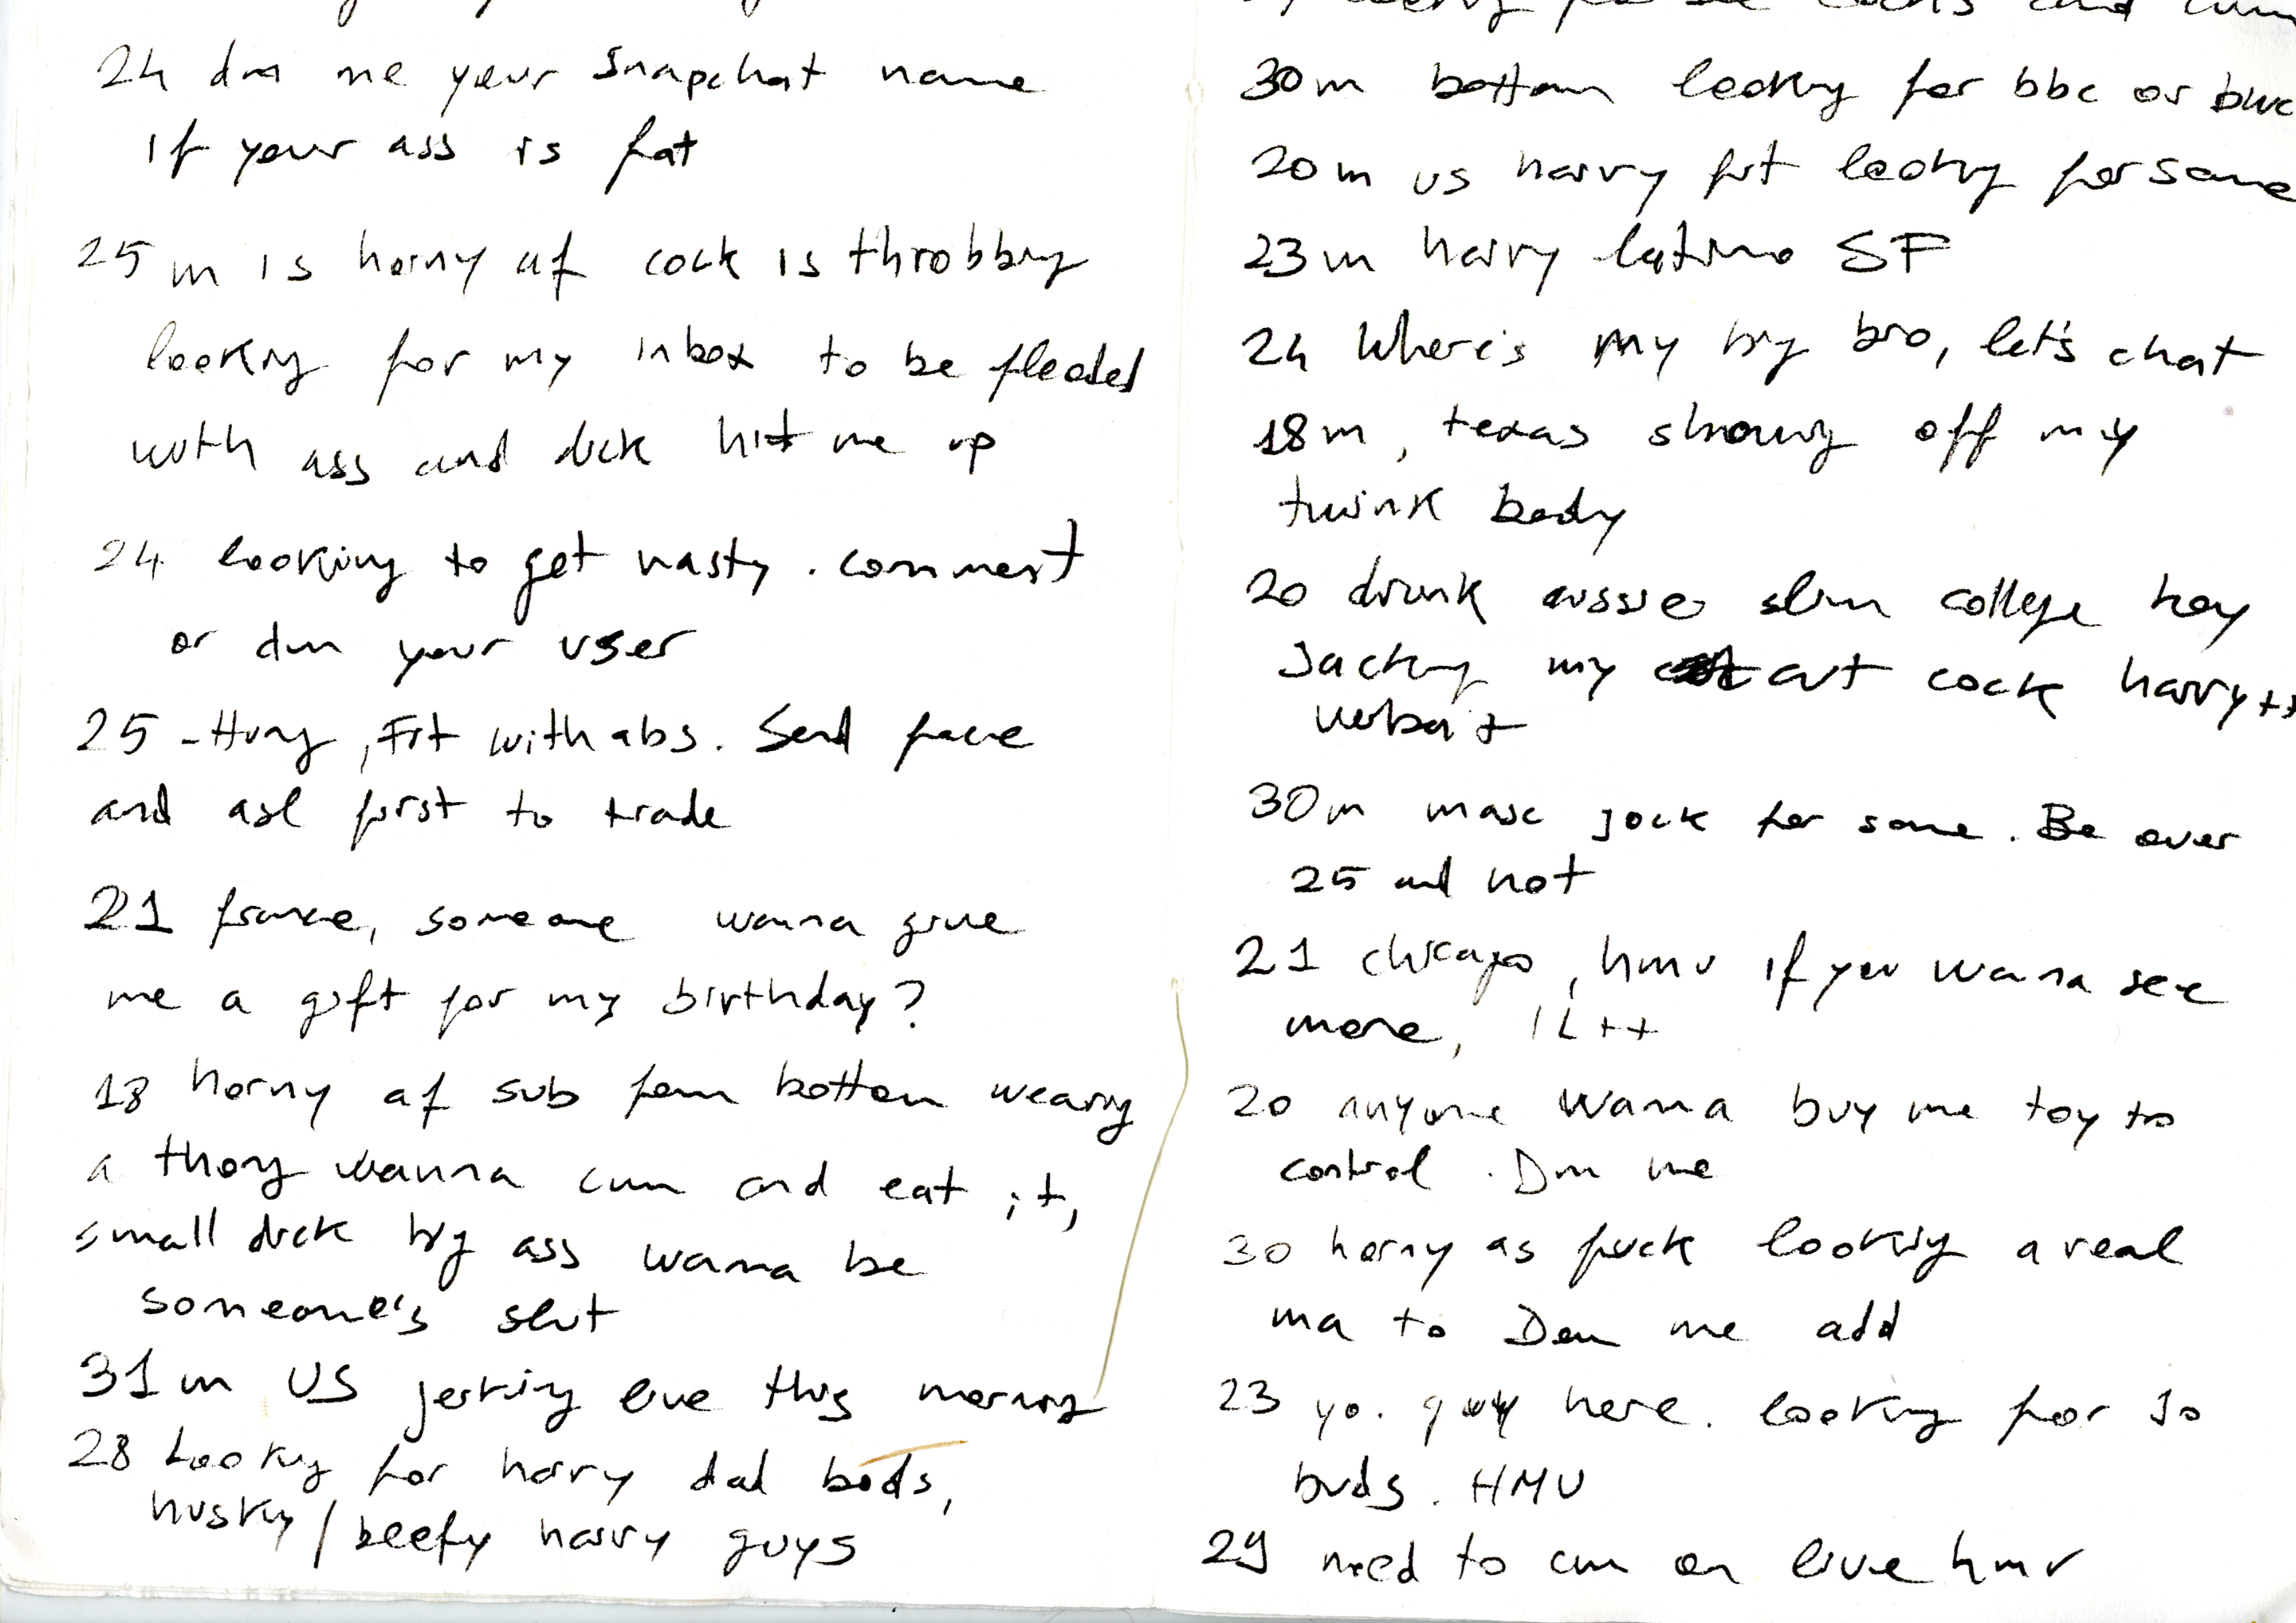 24 dm me your snapchat name
if your ass is fat
25 m is horny af cock is throbbing
looking for my inbox to be flooded
with ass and dick hit me up
24 looking to get nasty. comment
or dm your user
25 - Hung, Fit with abs. Send face
and asl first to trade
21 france, someone wanna give
me a gift for my birthday?
18 horny af sub fem bottom wearing
a thong wanna cum and eat it,
small dick big ass wanna be
someone's slut
31m US jerking live this morning
28 Looking for hairy dad bods,
husky / beefy hairy guys
and cum
30m bottom looking for bbc or bwc
20m us hairy fit looking for same
23m hairy latino SF
24 Where's my big bro, let's chat
18m, texas showing off my
twink body
20 drunk aussie slim college boy
jacking my cut cock hairy ++
verbal +
30m masc jock for same. Be over
25 and hot
21 chicago, hmu if you wanna see
more, 1L++
20 anyone wanna buy me toy to
control. Dm me
30 horny as fuck looking a real
ma to Dom me add
23 yo. guy here. looking for Jo
buds. HMU
29 need to cum on live hmu